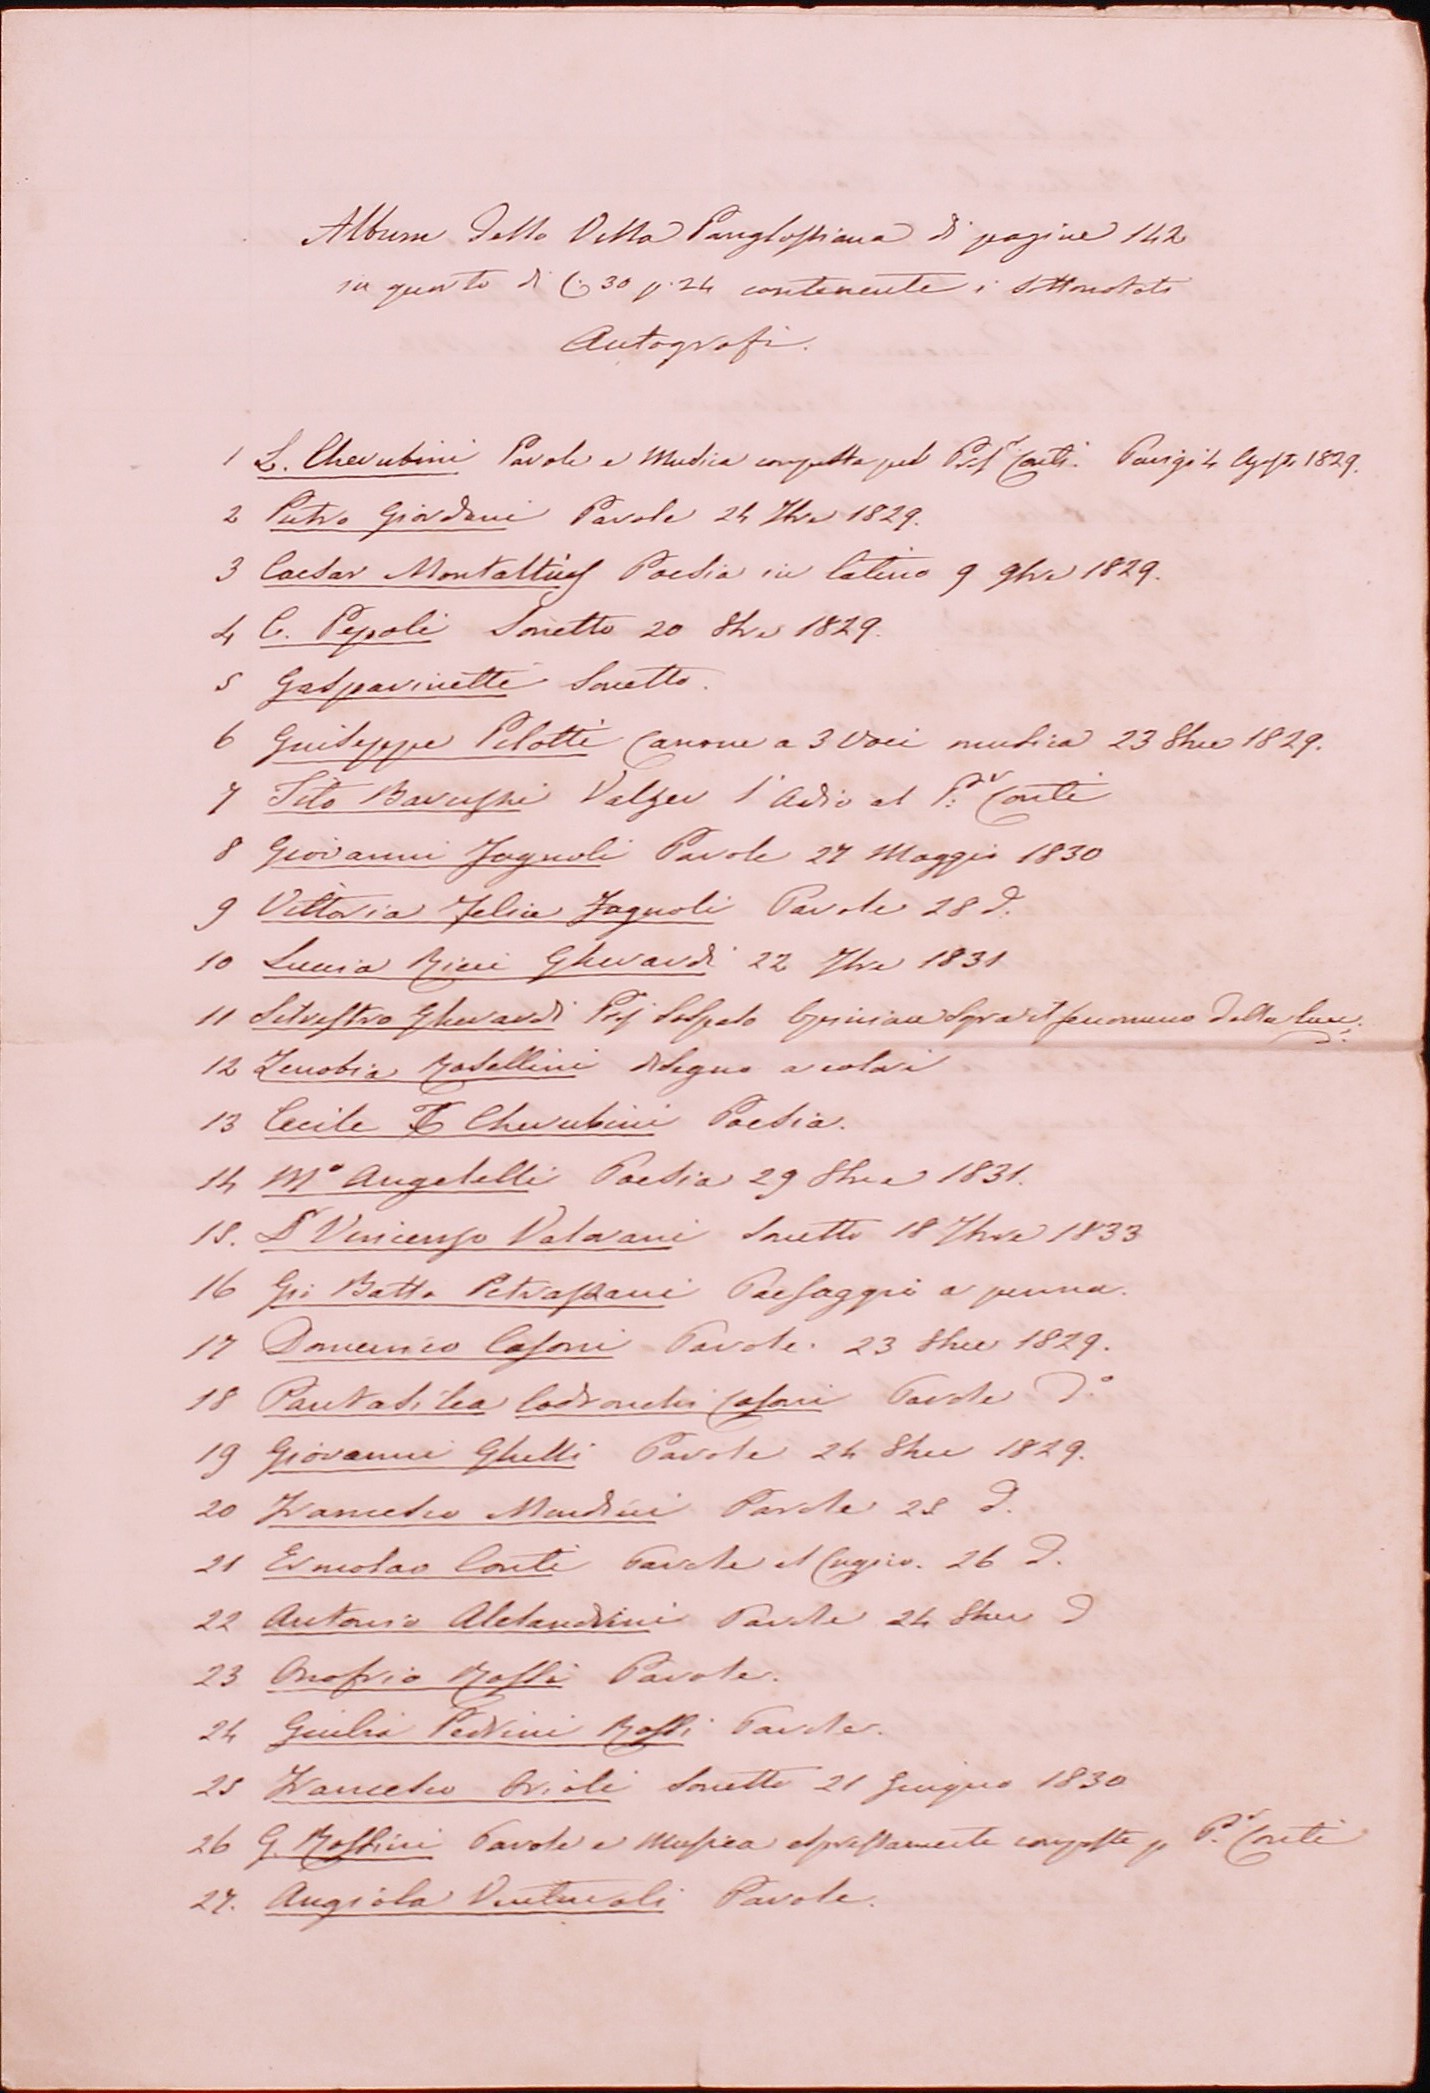 Album della Villa Panglossiana di pagine 142
in quarto di C. 30 p. 24 contenente i sottonotati
Autografi.
1 L. Cherubini Parole e Musica composta pel Prof Conti. Parigi 4 Agosto 1829.
2 Pietro Giordani Parole 24 7bre 1829.
3 Caesar Montaltius Poesia in latino 9 9bre 1829.
4 C. Pepoli Sonetto 20 8bre 1829.
5 Gasparinetti Sonetto.
6 Guiseppe Pilotti Canone a 3 Voci musica 23 8bre 1829.
7 Tito Valzer l'Adio al P.r Conti
8 Giovanni Fagnoli Parole 27 Maggio 1830
9 Vittoria Felice Fagnoli Parole 28 d.
10 Lucia Ricci Gherardi 22 7bre 1831
11 Silvestro Gherardi Prof Opinione Sopra il fenomeno della luce.
12 Zenobia Rosellini disegno a colori
13 Cecile Cherubini Poesia.
14 M.o Angelelli Poesia 29 8bre 1831.
15. Dr Vincenzo Valorani Sonetto 18 7bre 1833
16 Gi: Batta Petrazzani Paesaggio a penna.
17 Domenico Casoni Parole. 23 8bre 1829.
18 Pantasilea Codronchi Casoni Parole d.o
19 Giovanni Ghelli Parole 24 8bre 1829.
20 Francesco Mondini Parole 25 d.
21 Ermolao Conti Parole al Cugino. 26 d.
22 Antonio Alesandrini Parole 24 8bre d
23 Onofrio Rossi Parole.
24 Giulia Pedrini Rossi Parole.
25 Francesco Orioli Sonetto 21 Giugno 1830
26 G. Rossini Parole e Musica espressamente composta p P.r Conti
27. Angiola Venturoli Parole.